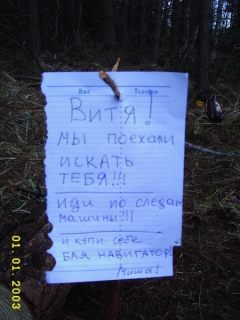 Витя!
мы поехали
искать
тебя!!!
иди по следам
машины!!!
и купи себе
бля навигатор!
Миша!
01.01.2003